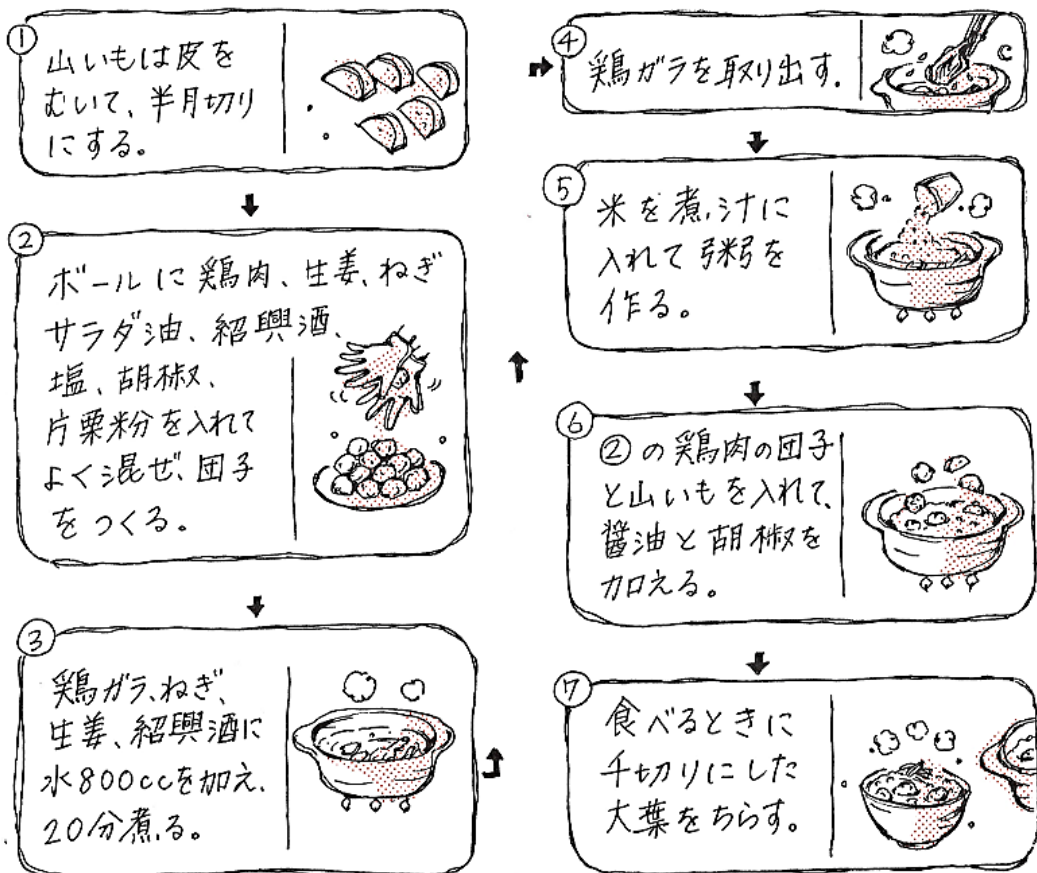 ①
山いもは皮を
むいて、半月切り
にする。
②
ボールに鶏肉、生姜、ねぎ
サラダ油、紹興酒、
塩、胡椒、
片栗粉を入れて
よく混ぜ、団子
をつくる。
③
鶏ガラ、ねぎ、
生姜、紹興酒に
水800ccを加え、
20分煮る。
④
鶏ガラを取り出す.
⑤
米を煮汁に
入れて粥を
作る。
⑥
②の鶏肉の団子
と山いもを入れて、
醤油と胡椒を
加える。
⑦
食べるときに
千切りにした
大葉をちらす。